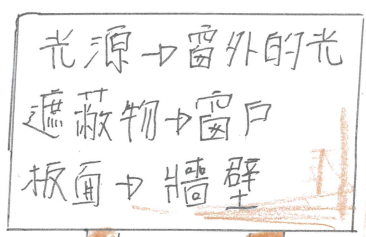 光源→窗外的光
遮蔽物→窗戶
板面→牆壁